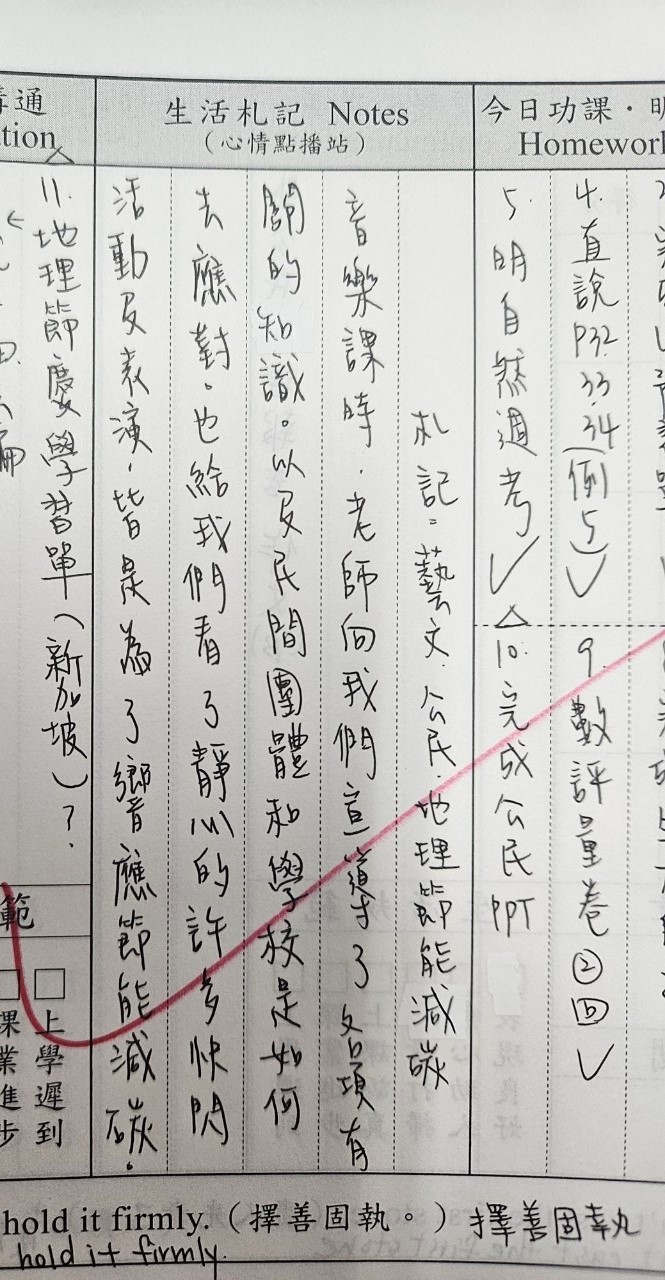 今日功課．明
Homework
4.直說P32.33.34(例5)✓
9.數評量卷②回✓
5.明自然週考✓
10.完成公民PPT
生活札記 Notes
（心情點播站）
札記：藝文.公民.地理節能減碳
音樂課時，老師向我們宣導了各項有
關的知識。以及民間團體和學校是如何
去應對。也給我們看了靜心的許多快閃
活動及表演，皆是為了響應節能減碳。
通
tion
11.地理節慶學習單(新加坡)?
範
上學遲到
課業進步
hold it firmly.（擇善固執。）擇善固執
hold it firmly.